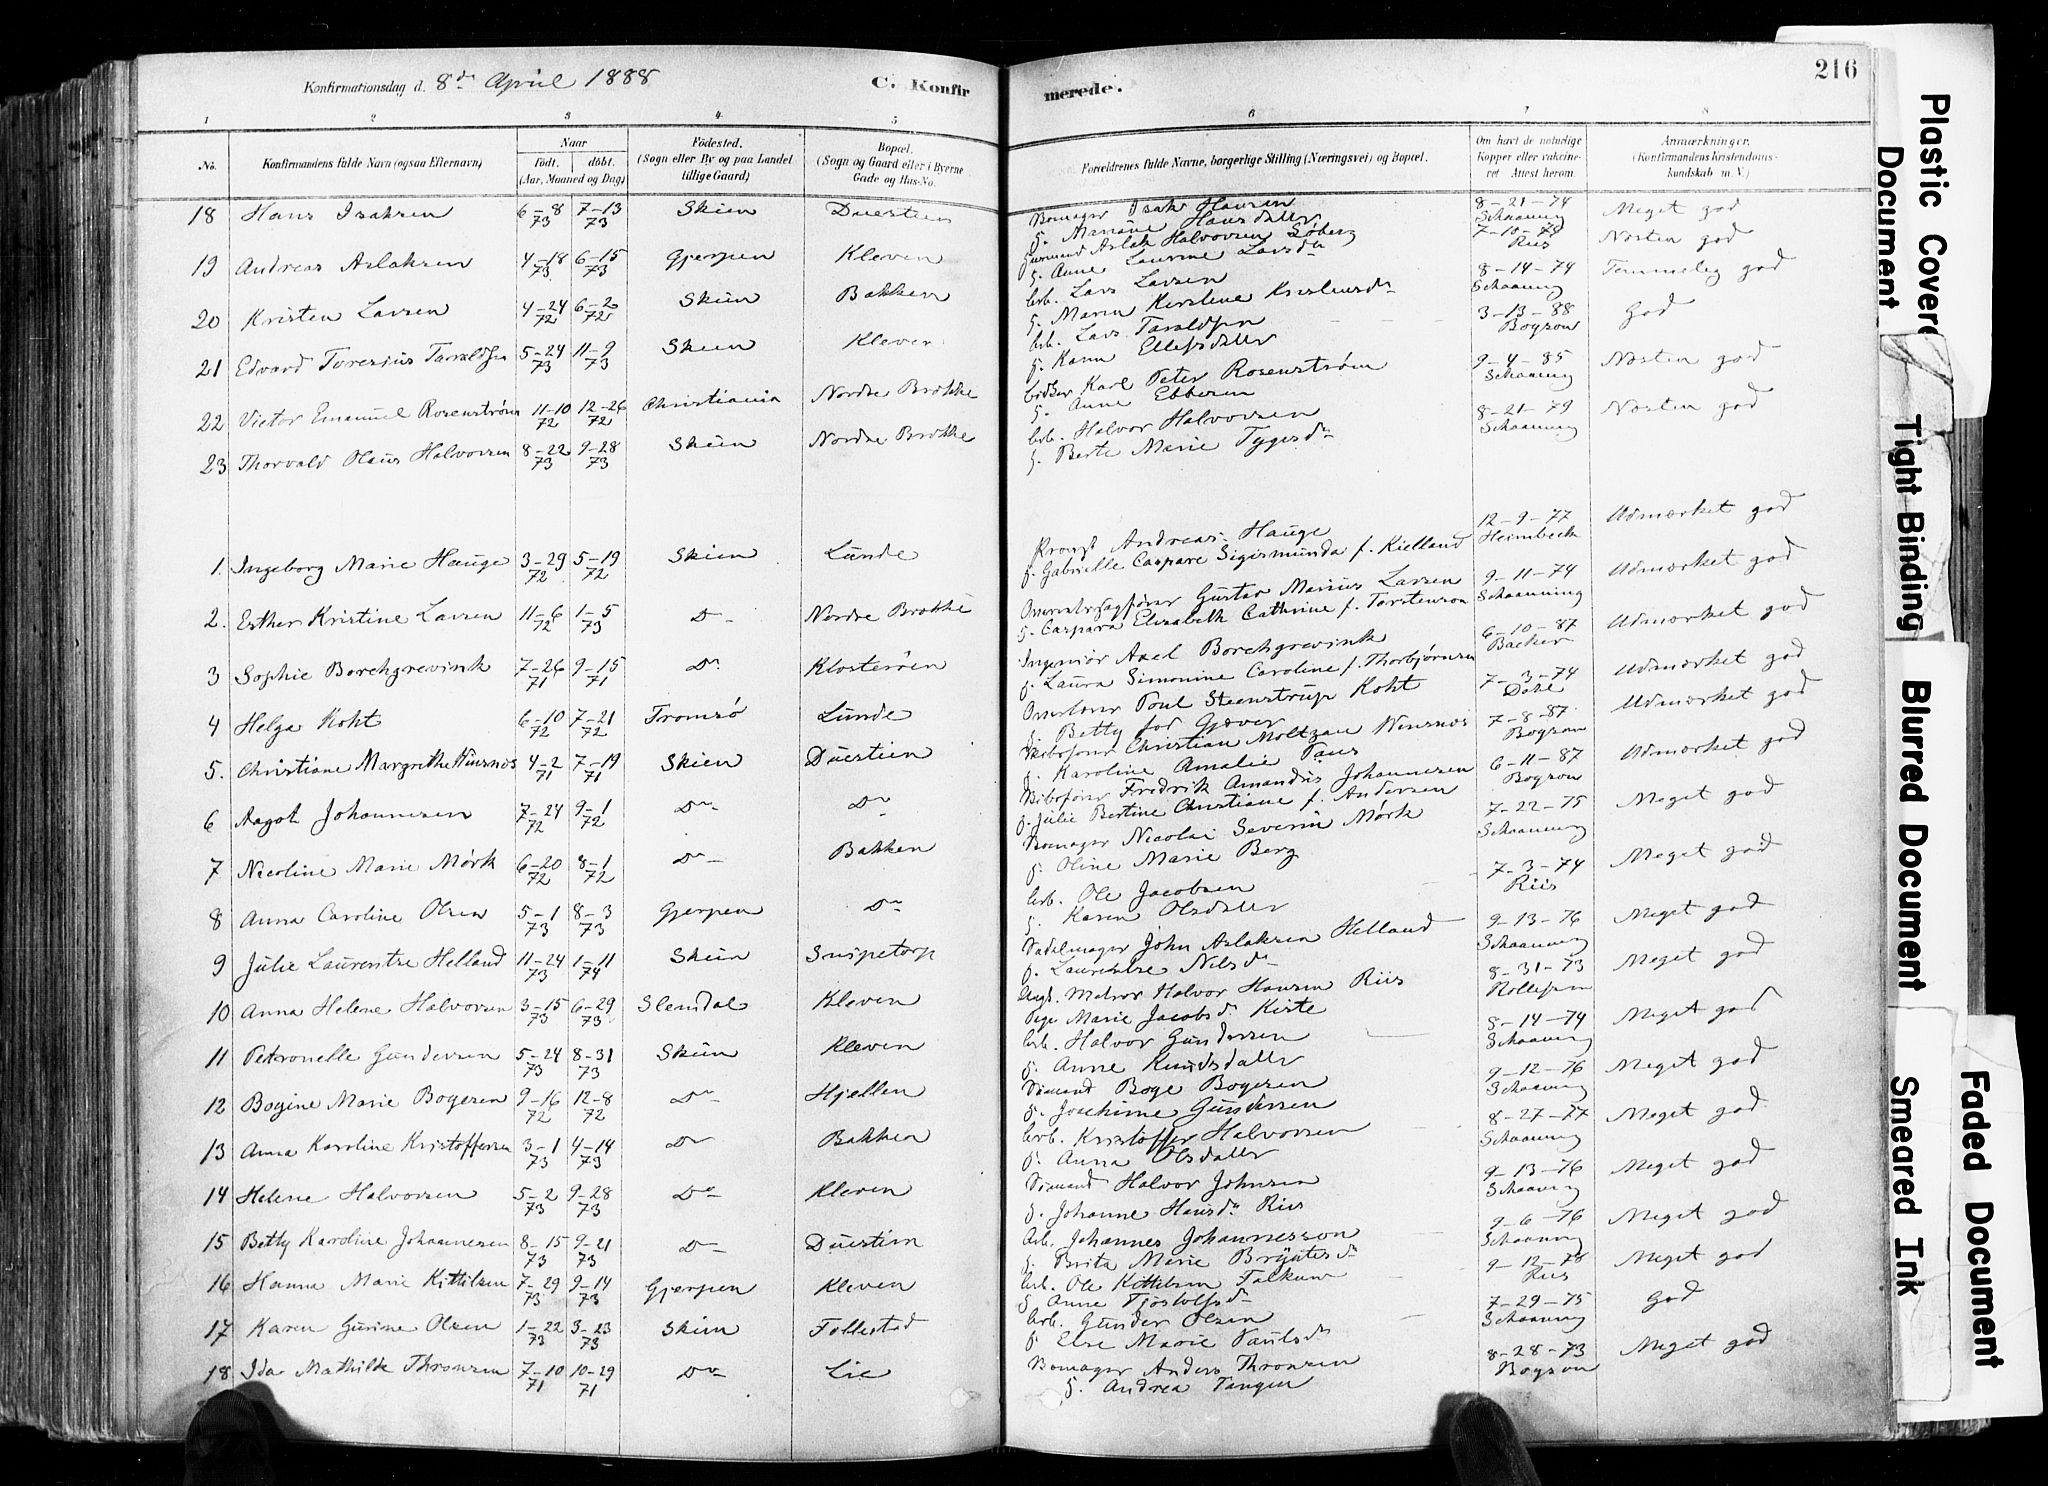 Konfirmationsdag d. 8de April 1888
C. Konfirmerede.
216
1 2 3 4 5 6 7 8
No. Konfirmandens fulde Navn (ogsaa Efternavn) Naar født. døbt. (Aar, Maaned og Dag) Fødested. (Sogn eller By og paa Landet tillige Gaard) Bopæl. (Sogn og Gaard eller i Byerne Gade og Hus-No. Forældrenes fulde Navne, borgerlige Stilling (Næringsvei) og Bopæl. Om havt de naturlige Kopper eller vakcineret Attest herom. Anmærkninger. (Konfirmandens Kristendomskundskab m. V.)
18 Hans Isaksen 6-8 73 7-13 73 Skien Duestien Bomager Isak Hansen 8-21-74 Meget god
H. Mariane Hansdatter Schaaning
19 Andreas Aslaksen 4-18 73 6-15 73 Gjerpen Kleven Aslak Halvorsen Søberg Riis Næsten god
H. Anne Laurine Larsdr
20 Kristen Larsen 4-24 72 6-2 72 Skien Bakken Arb. Lars Larsen 8-14-74 Temmelig god
H. Maren Kirstine Kristensdr Schaaning
21 Edvard Toresius Taraldsen 5-24 73 11-9 73 Skien Kleven Arb. Lars Taraldsen 3-13-88 God
H. Karen Ellefsdatter Boyson
22 Victor Emanuel Rosenstrøm 11-10 72 12-26 72 Christiania Nordre Brekke Karl Peter Rosenstrøm 9-4-85 Næsten god
H. Anne Ebbesen Schaaning
23 Thorvald Olaus Halvorsen 8-22 73 9-28 73 Skien Nordre Brekke Arb. Halvor Halvorsen 8-21-79 Næsten god
H. Berte Marie Tygesdr Schaaning
1. Ingeborg Marie Hauge 3-29 72 5-19 72 Skien Lunde Provst Andreas Hauge 12-9-77 Udmærket god
H. Gabrielle Caspare Sigismunda f. Kielland Heimbeck
2. Esther Kristine Larsen 11-6 72 1-5 73 Do Nordre Brekke Overretssagfører Gustav Marius Larsen 9-11-74 Udmærket god
H. Caspara Elisabeth Cathrine f. Torstenson Schaanning
3 Sophie Borchgrevink 7-26 71 9-15 71 Do Klosterøen Ingeniør Axel Borchgrevink 6-10-87 Udmærket god
H. Laura Simonine Caroline f. Thorbjørnsen Backer
4 Helga Koht 6-10 72 7-21 72 Tromsø Lunde Overlærer Poul Steenstrup Koht 7-3-74 Udmærket god
H. Betty fød Gjæver
5. Christiane Margrethe Winsnæs 4-2 71 7-19 71 Skien Duestien Skibsfører Christian Moltzau Winsnæs 7-8-87 Udmærket god
H. Karoline Amalie Boyson
6 Aagot Johannesen 7-24 72 9-1 72 Do Do Skibsfører Fredrik Amandus Johannesen 6-11-87 Udmærket god
H. Julie Bertine Christiane f. Andersen Boyson
7 Nicoline Marie Mørk 6-20 72 8-1 72 Do Bakken Bomager Nicolai Severin Mørk 7-22-75 Meget god
H. Oline Marie Berg Schaaning
8 Anna Caroline Olsen 5-1 73 8-3 73 Gjerpen Do Arb. Ole Jacobsen 7-3-74 Meget god
H. Karen Olsdatter Riis
9 Julie Laurentze Helland 11-24 73 1-11 74 Skien Snipetorp Sadelmager John Aslaksen Helland 9-13-76 Meget god
H. Laurentze Nilsdr Schaaning
10 Anna Helene Halvorsen 3-15 73 6-29 73 Slemdal Kleven Ungk. Matros Halvor Hansen Riis 8-31-73 Meget god
Pige Marie Jacobsdr Kiste
11 Petronelle Gundersen 5-24 73 8-31 73 Skien Kleven Arb. Halvor Gundersen 8-14-74 Meget god
H. Anne Knudsdatter Schaaning
12 Bogine Marie Bogesen 9-16 72 12-8 72 Do Hjellen Sømand Boge Bogesen 9-12-76 Meget god
H. Joachime Gundersen Schaaning
13 Anna Karoline Kristoffersen 3-1 73 4-14 73 Do Bakken Arb. Kristoffer Halvorsen 8-27-77 Meget god
H. Anna Olsdatter Schaaning
14 Helene Halvorsen 5-2 73 9-28 73 Do Kleven Sømand Halvor Johnsen 9-13-76 Meget god
H. Johanne Hansdr Riis Schaaning
15 Betty Karoline Johannesen 8-15 73 9-21 73 Do Duestien Arb. Johannes Johannesson 9-6-76 Meget god
H. Brita Marie Schaaning
16 Hanna Marie Kittilsen 7-29 73 9-14 73 Gjerpen Kleven Arb. Ole Kittilsen Falkum 9-12-78 Meget god
H. Anne Tjostolfsdr Riis
17 Karen Gurine Olsen 1-22 73 3-23 73 Skien Follestad Arb. Gunder Olsen 7-29-75 God
H. Else Marie Paulsdr Schaaning
18 Ida Mathilde Thronsen 7-10 71 10-29 71 Do Lie Bomager Anders Thronsen 8-28-73 Meget god
H. Andrea Tangen Boyson
Plastic Covered Document
Tight Binding
Blurred Document
Faded Document
Smeared Ink